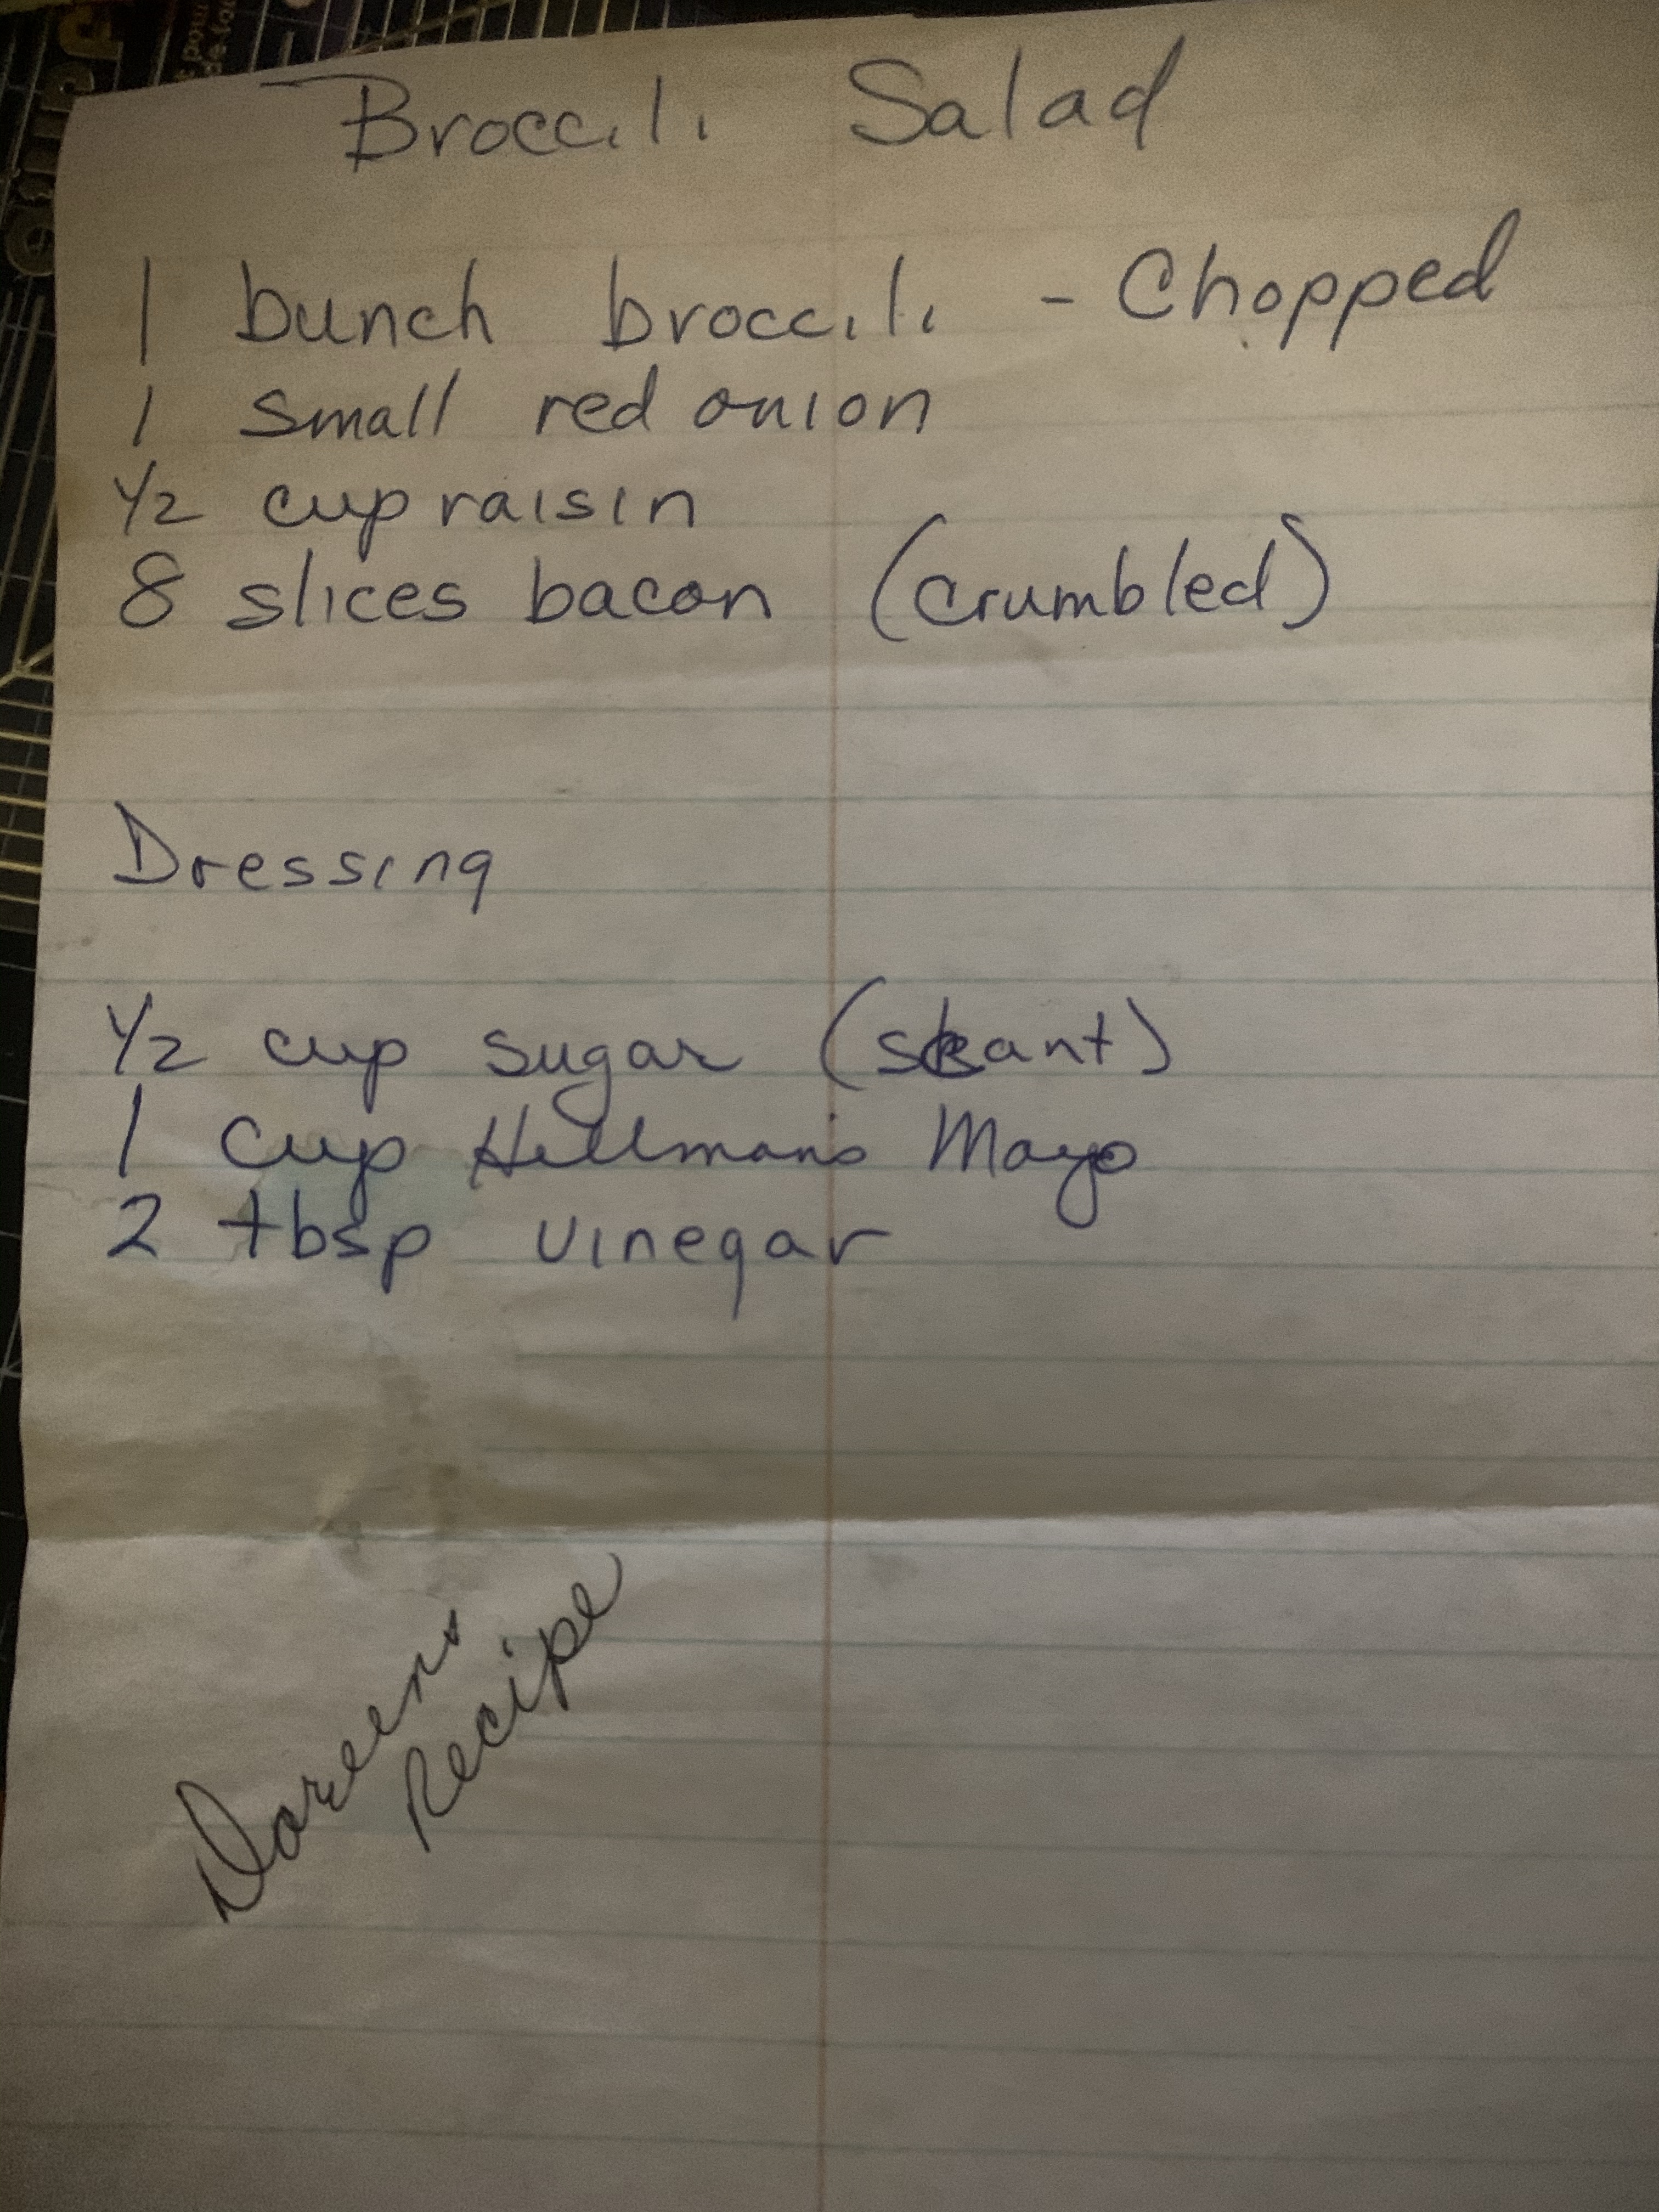 Broccili Salad
1 bunch broccili - Chopped
1 small red onion
1/2 cup raisin
8 slices bacon (crumbled)
Dressing
1/2 cup sugar (skant)
1 cup Hellman's Mayo
2 tbsp vinegar
Doreens
Recipe